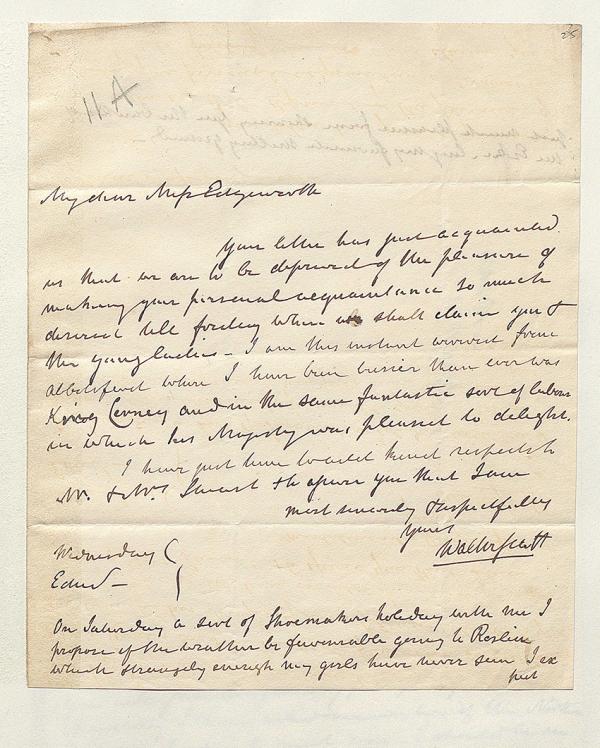 25
A 11
My dear Miss Edgeworth
Your letter has just acquainted
us that we are to be deprived of the pleasure of
making your personal acquaintance so much
desired till friday when we shall claim you &
the young ladies – I am this instant arrived from
Abbotsford where I have been busier than ever was
King Corney and in the same fantastic sort of labour
in which his Majesty was pleased to delight.
I have just time to add kind respects to
Mr. & Mrs Stewart & to assure you that I am
most sincerely & respectfully
yours
Walter Scott
Wednesday
Edinr –
On Saturday a sort of Shoemakers holiday with me I
propose if the weather be favourable going to Roslin
which strangely enough my girls have never seen I ex
pect